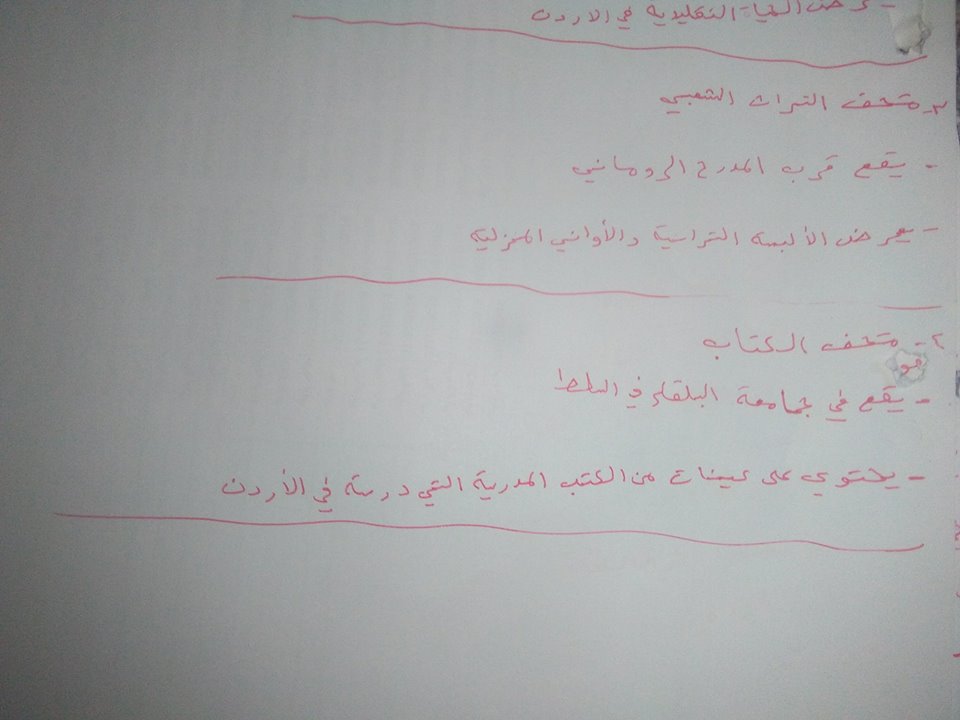 - عرض الحياة التقليدية في الأردن
٣- متحف التراث الشعبي
- يقع قرب المدرج الروماني
- يعرض الألبسة التراسية والأواني المنزلية
٤- متحف الكتاب
هو
- يقع في جامعة البلقاء في السلط
- يحتوي على عينات من الكتب المدرسية التي درسة في الأردن